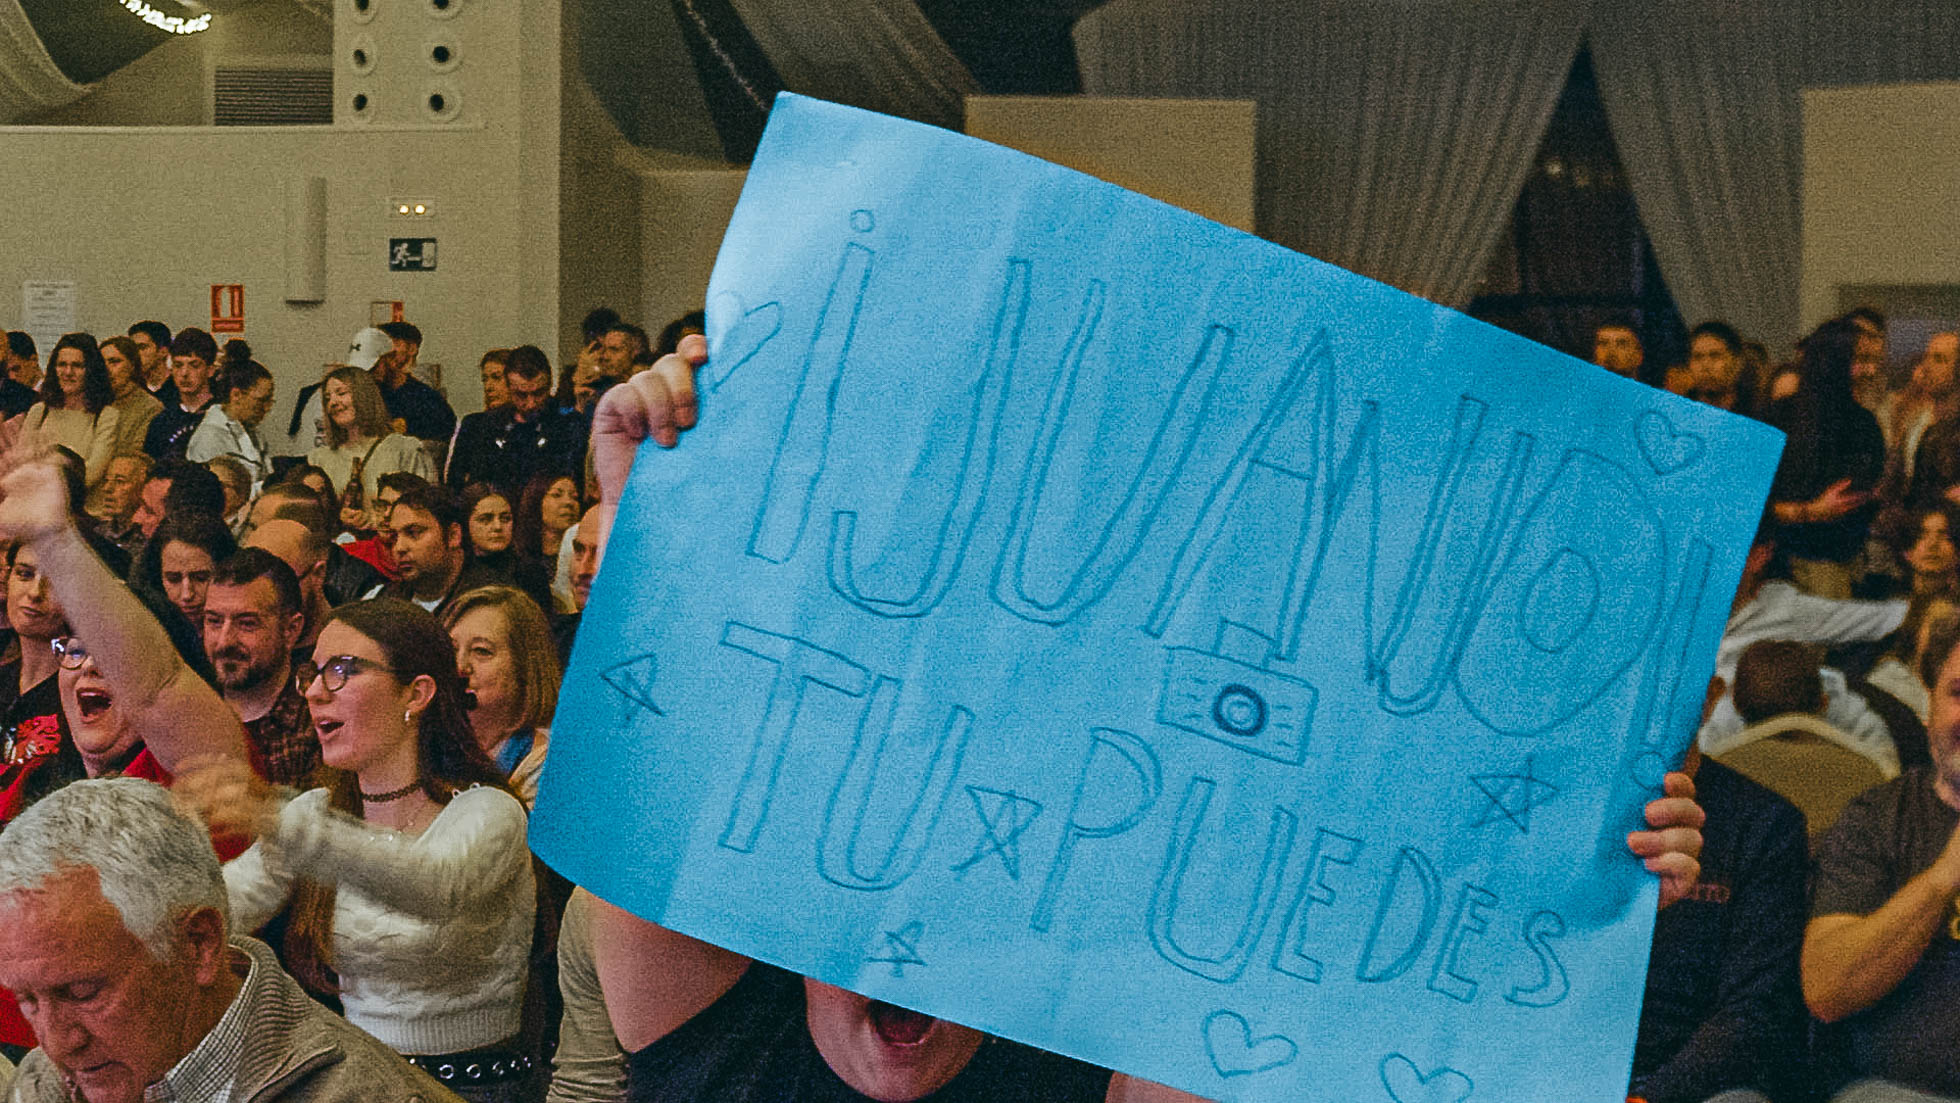 ¡JUANJO!
TU PUEDES